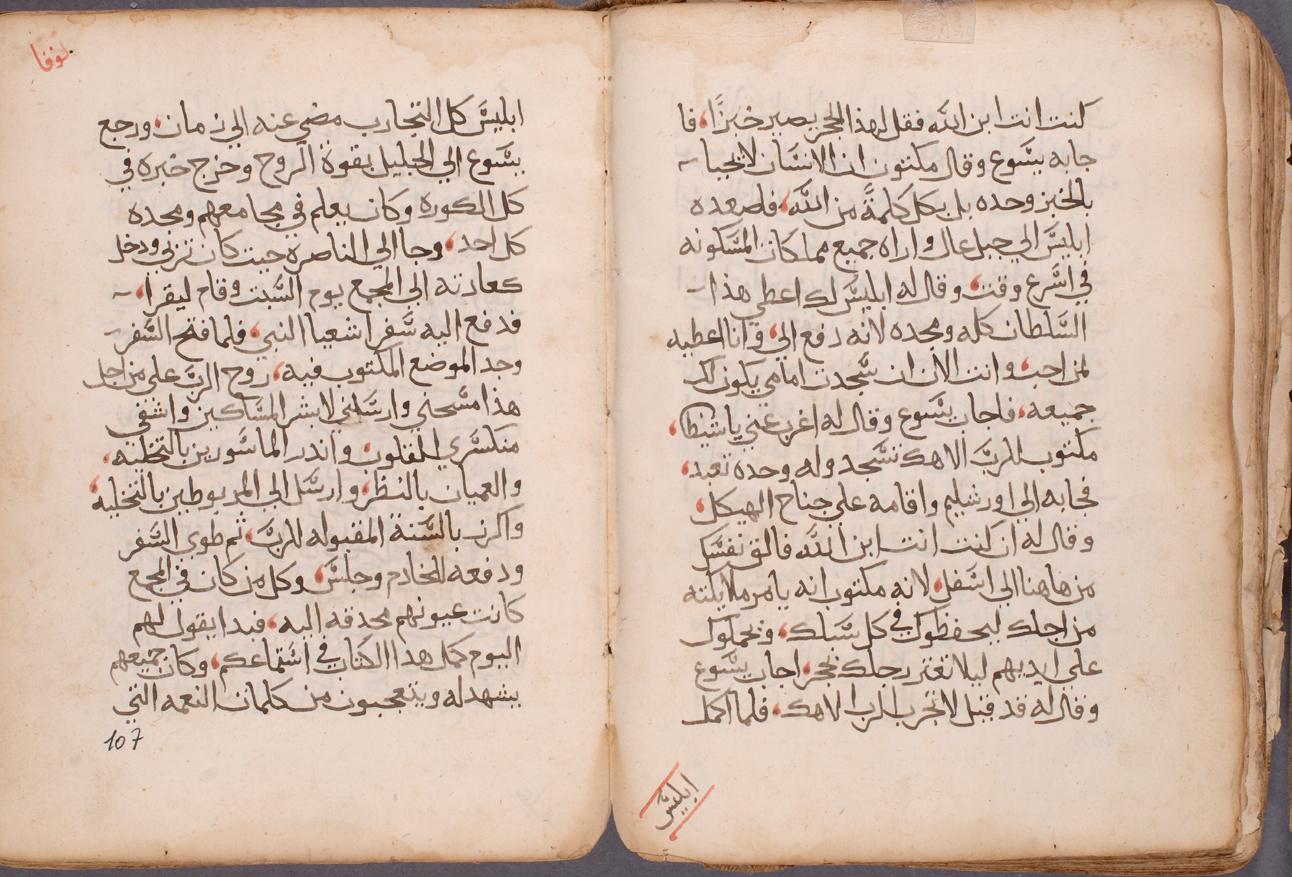 كنت انت ابن الله فقل لهذا الحجر يصير خبزًا، فا
جابه يسوع وقال مكتوب ان الانسان لا يحيا
بالخبز وحده بل بكل كلمةً من الله، فاصعده
ابليس الي جبل عال واراه جميع مملكات المسكونه
في اسرع وقت، وقال له ابليس لك اعطي هذا
السلطان كله ومجده لانه دفع الي، وانا اعطيه
لمن احب، وانت الان ان سجدت امامي يكون لك
جميعه، فاجاب يسوع وقال له اغرب عني يا شيطا،
مكتوب للرب الاهك تسجد وله وحده تعبد،
فجابه الي اورشليم واقامه علي جناح الهيكل،
وقال له ان كنت انت ابن الله فالق نفسك
من هاهنا الي اسفل، لانه مكتوب انه يامر ملايكته
من اجلك ليحفظوك في كل سبلك، وتحملوك
علي ايديهم ليلا تعتر رجلك بحجر، اجاب يسوع
وقال له قد قيل لا تجرب الرب الاهك، فلما اكمل
ابليس
لوقا
ابليس كل التجارب مضي عنه الي زمان، ورجع
يسوع الي الجليل بقوة الروح وخرج خبره في
كل الكوره وكان يعلم في مجامعهم ومجده
كل احد، وجا الي الناصره حيث كان تربي ودخل
كعادته الي المجمع يوم السبت وقام ليقرا،
فدفع اليه سفر اشعيا النبي، فلما فتح السفر
وجد الموضع المكتوب فيه، روح الرب علي من اجل
هذا مسحني وارسلني لابشر المساكين واشفي
منكسري القلوب، واندر الماسورين بالتخليه،
والعميان بالنظر، وارسل الي المربوطين بالتخليه،
واكرز بالسنة المقبوله للرب، ثم طوي السفر
ودفعه للخادم وجلس، وكل من كان في المجمع
كانت عيونهم محدقه اليه، فبدا يقول لهم
اليوم كمل هدا الكتاب في استماعكم، وكان جميعهم
يشهد له ويتعجبون من كلمات النعمه التي
107